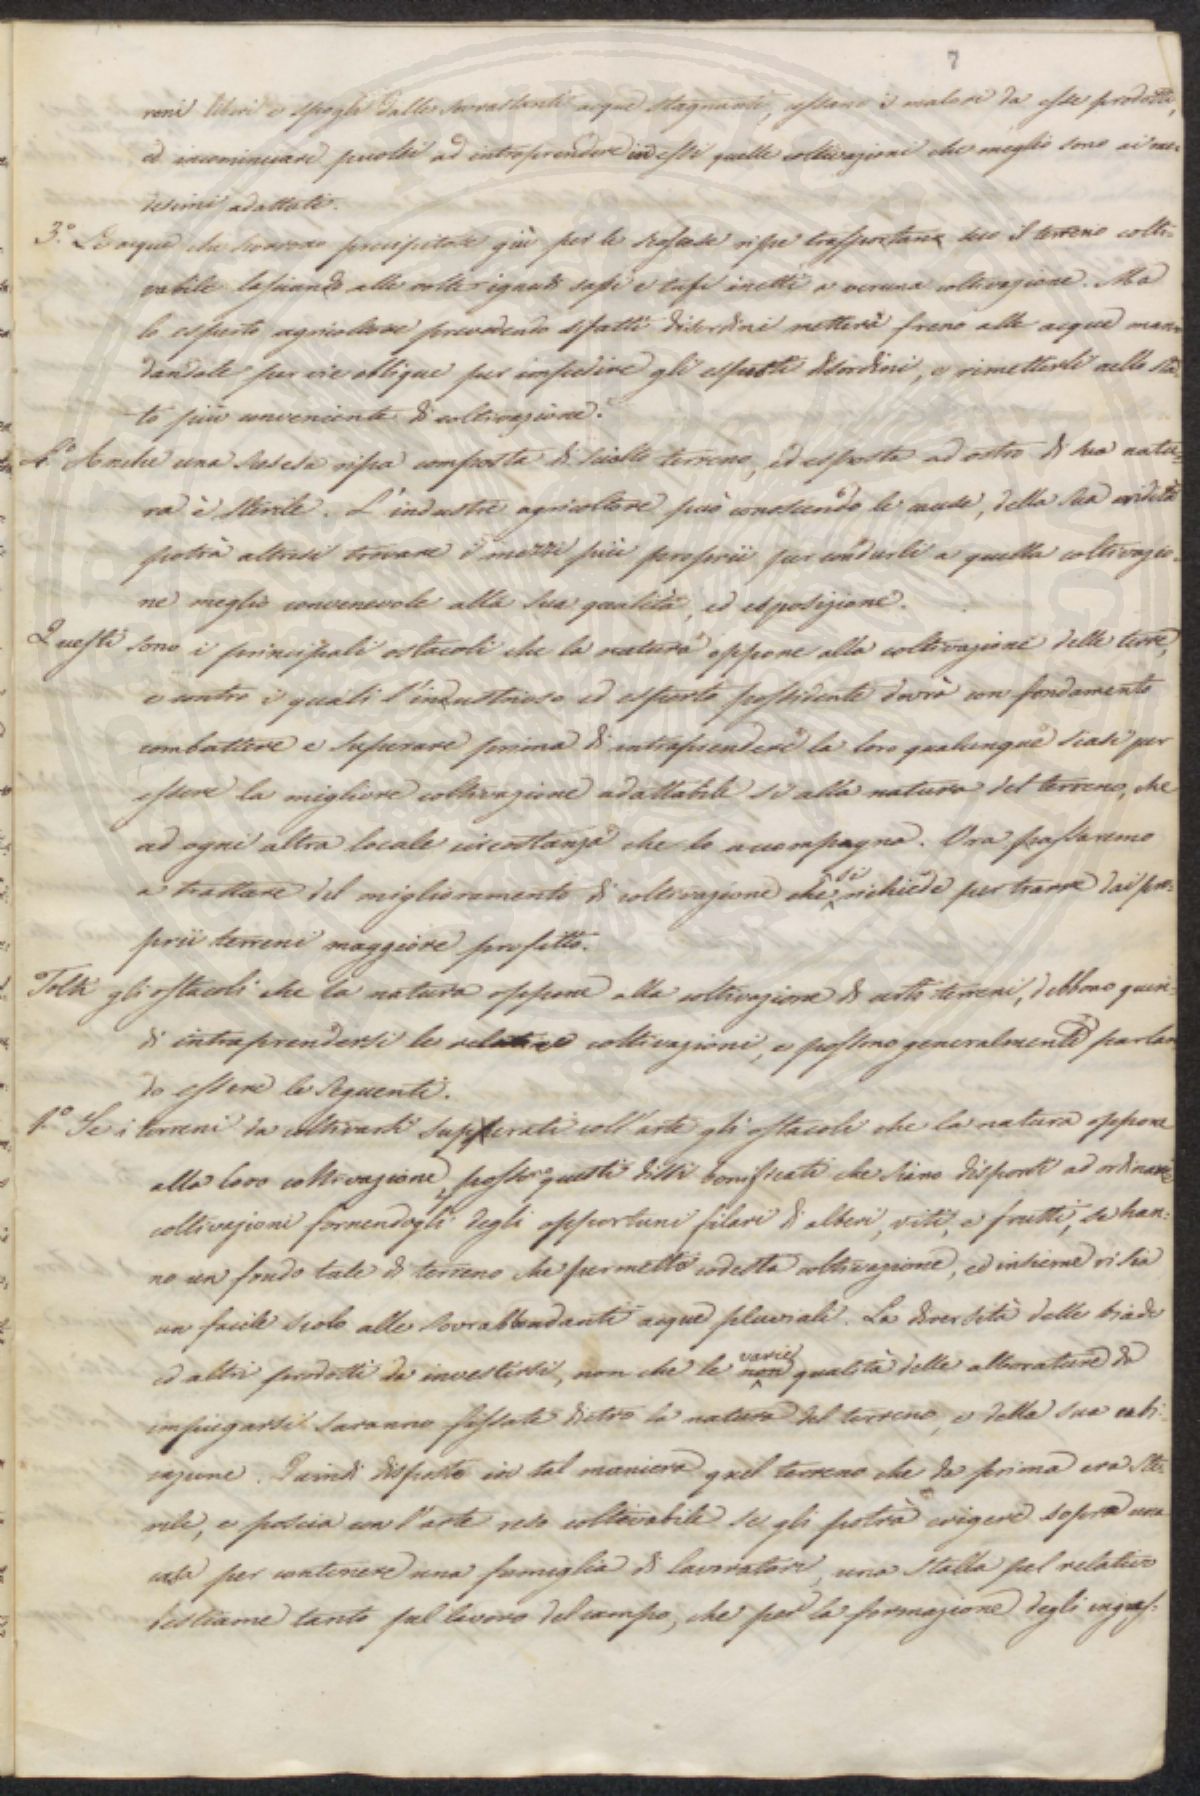 7
reni liberi e spogli dalle sovrastanti acque stagnanti, essano i malori da esse prodotti,
ed incominciare puossi ad intraprendere in essi quelle coltivazioni che meglio sono ai me-
desimi adattati.
3.º Le acque che scorrono precipitate giù per le scoscese ripe trasportano seco il terreno colti-
vabile lasciando alle volte ignudi sassi e tufi inetti a veruna coltivazione. Ma
lo esperto agricoltore prevedendo sifatti disordini metterà freno alle acque man-
dandole per vie oblique per impedire gli esposti disordini, e rimetterli nello sta-
to più conveniente di coltivazione.
4.º Anche una scoscesa ripa composta di sciolto terreno, ed esposta ad ostro di sua natu-
ra è sterile. L'industre agricoltore può conoscendo le cause, della sua aridità
potrà altresì trovare i mezzi più proprii per condurli a quella coltivazio-
ne meglio convenevole alla sua qualità, ed esposizione.
Questi sono i principali ostacoli che la natura oppone alla coltivazione delle terre,
e contro i quali l'industrioso ed esperto possidente dovrà con fondamento
combattere e superare prima di intraprendere la loro qualunque siasi per
essere la migliore coltivazione adattabile sì alla natura del terreno, che
ad ogni altra locale circostanza che lo accompagna. Ora passaremo
a trattare del miglioramento di coltivazione che se richiede per trarre dai pro-
prii terreni maggiore profitto.
Tolti gli ostacoli che la natura oppone alla coltivazione di certi terreni, debbono quin-
di intraprendersi le relative coltivazioni, e possono generalmente parlan
do essere le seguenti.
1.º Se i terreni da coltivarsi superati coll'arte gli ostacoli che la natura oppone
alla loro coltivazione, posson questi dirsi bonificati che siano disporsi ad ordinarie
coltivazioni fornendogli degli opportuni filari di alberi, viti, e frutti, se han-
no un fondo tale di terreno che permetta codesta coltivazione, ed insieme vi sia
un facile scolo alle sovrabbondanti acque pluviali. La diversità delle biade
ed altri prodotti da investirsi, non che le varie qualità delle alberature da
impiegarsi saranno fissate dietro la natura del terreno, e della sua ubi-
cazione. Quindi disposto in tal maniera quel terreno che da prima era ste-
rile, e poscia con l'arte reso coltivabile se gli potrà erigere sopra una
casa per contenere una famiglia di lavoratori, una stalla pel relativo
bestiame tanto pel lavoro del campo, che per la formazione degli ingras-